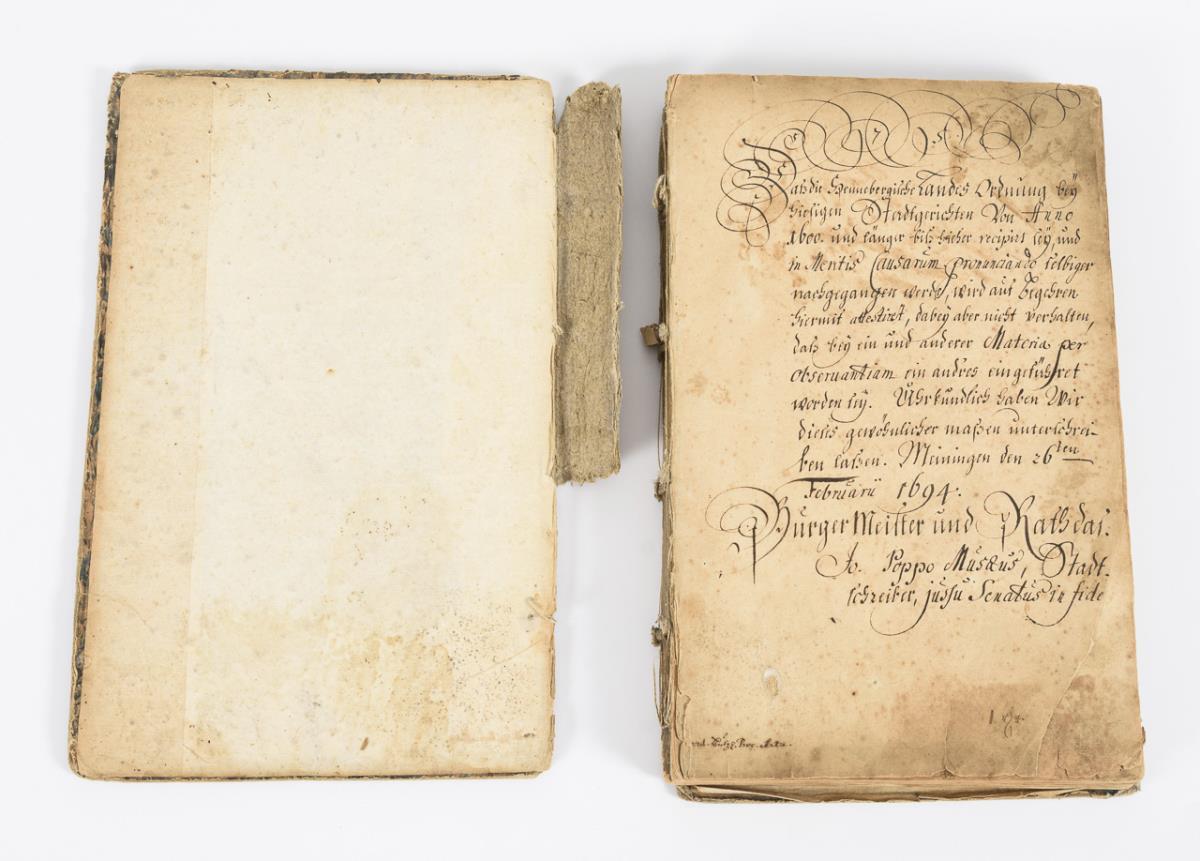 Daß die Hennebergische Landes Ordnung beÿ
hiesigen Stadtgerichten Von Anno
1600. und länger biß hieher recipirt seÿ, und
in Meritis Causarum pronunciando selbiger
nachgegangen werde, wird auf Begehren
hiermit attestiret, dabey aber nicht verhalten,
daß bey ein und anderer Materia per
observantiam ein andres eingeführet
worden seÿ. Uhrkundlich haben Wir
dieses gewöhnlicher maßen unterschrei-
ben laßen. Meiningen den 26ten
Februarii 1694.
BürgerMeister und Rath das.
Jo. Poppo Musæus, Stadt-
schreiber, jussu Senatus in fide